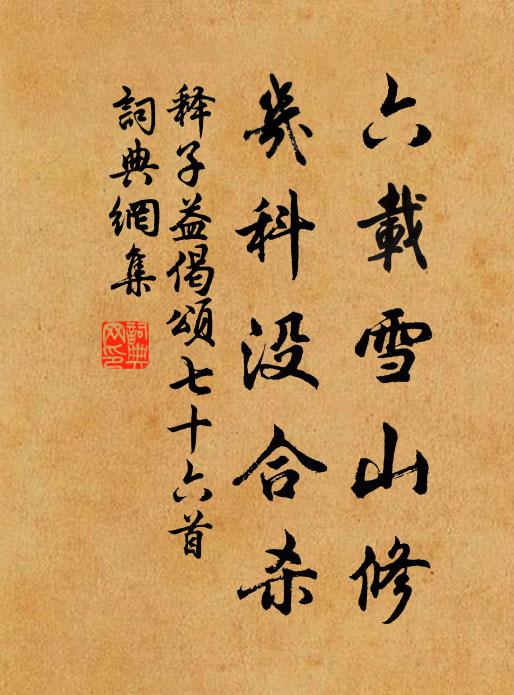 六載雪山修
幾科没合杀
释子益偈颂七十六首
詞典網集
詞典
网印